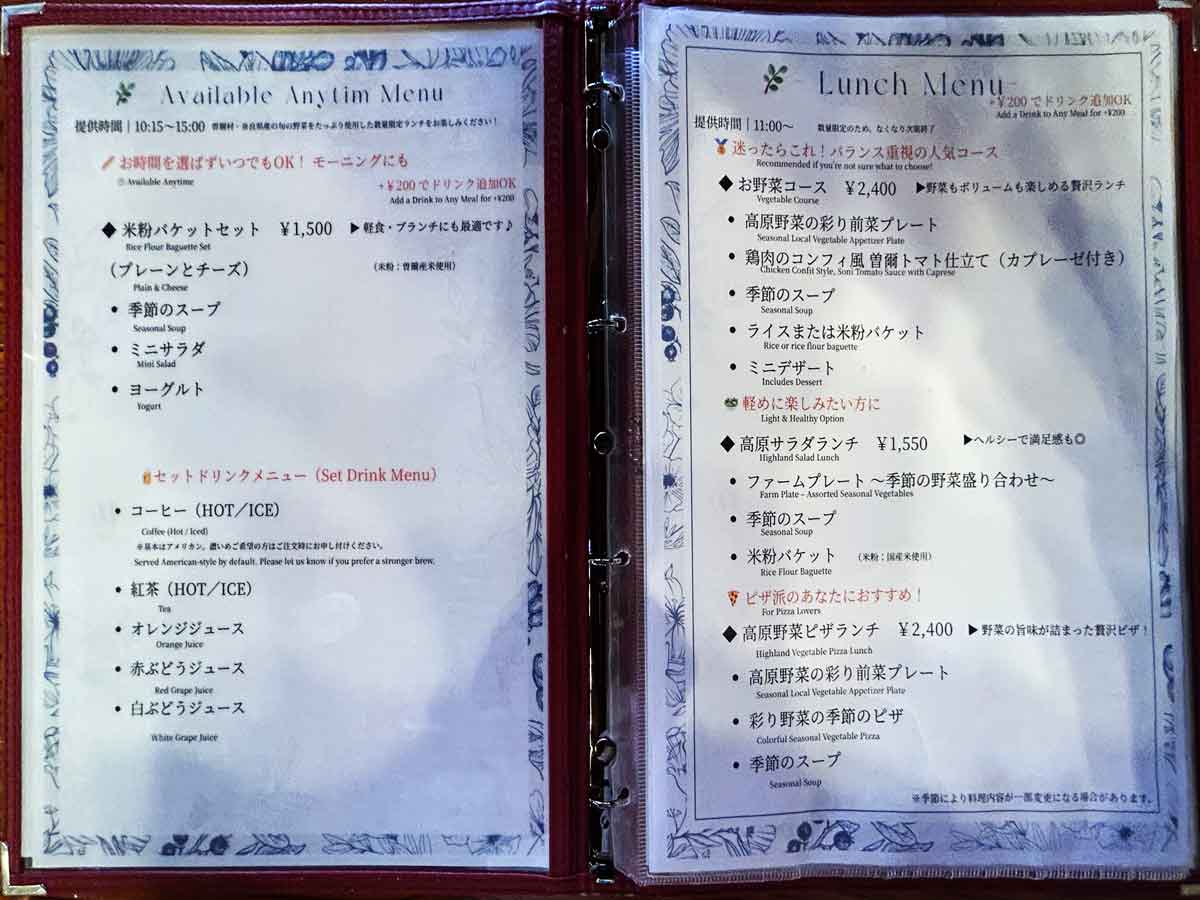 Available Anytim Menu
提供時間｜10:15～15:00 曽爾村・奈良県産の旬の野菜をたっぷり使用した数量限定ランチをお楽しみください！
お時間を選ばずいつでもOK！ モーニングにも
Available Anytime
+￥200 でドリンク追加OK
Add a Drink to Any Meal for +¥200
◆ 米粉バケットセット ￥1,500 ▶軽食・ブランチにも最適です♪
Rice Flour Baguette Set
（プレーンとチーズ） （米粉：曽爾産米使用）
Plain & Cheese
• 季節のスープ
Seasonal Soup
• ミニサラダ
Mini Salad
• ヨーグルト
Yogurt
セットドリンクメニュー（Set Drink Menu）
• コーヒー（HOT／ICE）
Coffee (Hot / Iced)
※基本はアメリカン。濃いめご希望の方はご注文時にお申し付けください。
Served American-style by default. Please let us know if you prefer a stronger brew.
• 紅茶（HOT／ICE）
Tea
• オレンジジュース
Orange Juice
• 赤ぶどうジュース
Red Grape Juice
• 白ぶどうジュース
White Grape Juice
- Lunch Menu-
+￥200 でドリンク追加OK
Add a Drink to Any Meal for +¥200
提供時間｜11:00～ 数量限定のため、なくなり次第終了
迷ったらこれ！バランス重視の人気コース
Recommended if you're not sure what to choose!
◆ お野菜コース ￥2,400 ▶野菜もボリュームも楽しめる贅沢ランチ
Vegetable Course
• 高原野菜の彩り前菜プレート
Seasonal Local Vegetable Appetizer Plate
• 鶏肉のコンフィ風 曽爾トマト仕立て（カプレーゼ付き）
Chicken Confit Style, Soni Tomato Sauce with Caprese
• 季節のスープ
Seasonal Soup
• ライスまたは米粉バケット
Rice or rice flour baguette
• ミニデザート
Includes Dessert
軽めに楽しみたい方に
Light & Healthy Option
◆ 高原サラダランチ ￥1,550 ▶ヘルシーで満足感も◎
Highland Salad Lunch
• ファームプレート ～季節の野菜盛り合わせ～
Farm Plate – Assorted Seasonal Vegetables
• 季節のスープ
Seasonal Soup
• 米粉バケット （米粉：国産米使用）
Rice Flour Baguette
ピザ派のあなたにおすすめ！
For Pizza Lovers
◆ 高原野菜ピザランチ ￥2,400 ▶野菜の旨味が詰まった贅沢ピザ！
Highland Vegetable Pizza Lunch
• 高原野菜の彩り前菜プレート
Seasonal Local Vegetable Appetizer Plate
• 彩り野菜の季節のピザ
Colorful Seasonal Vegetable Pizza
• 季節のスープ
Seasonal Soup
※季節により料理内容が一部変更になる場合があります。